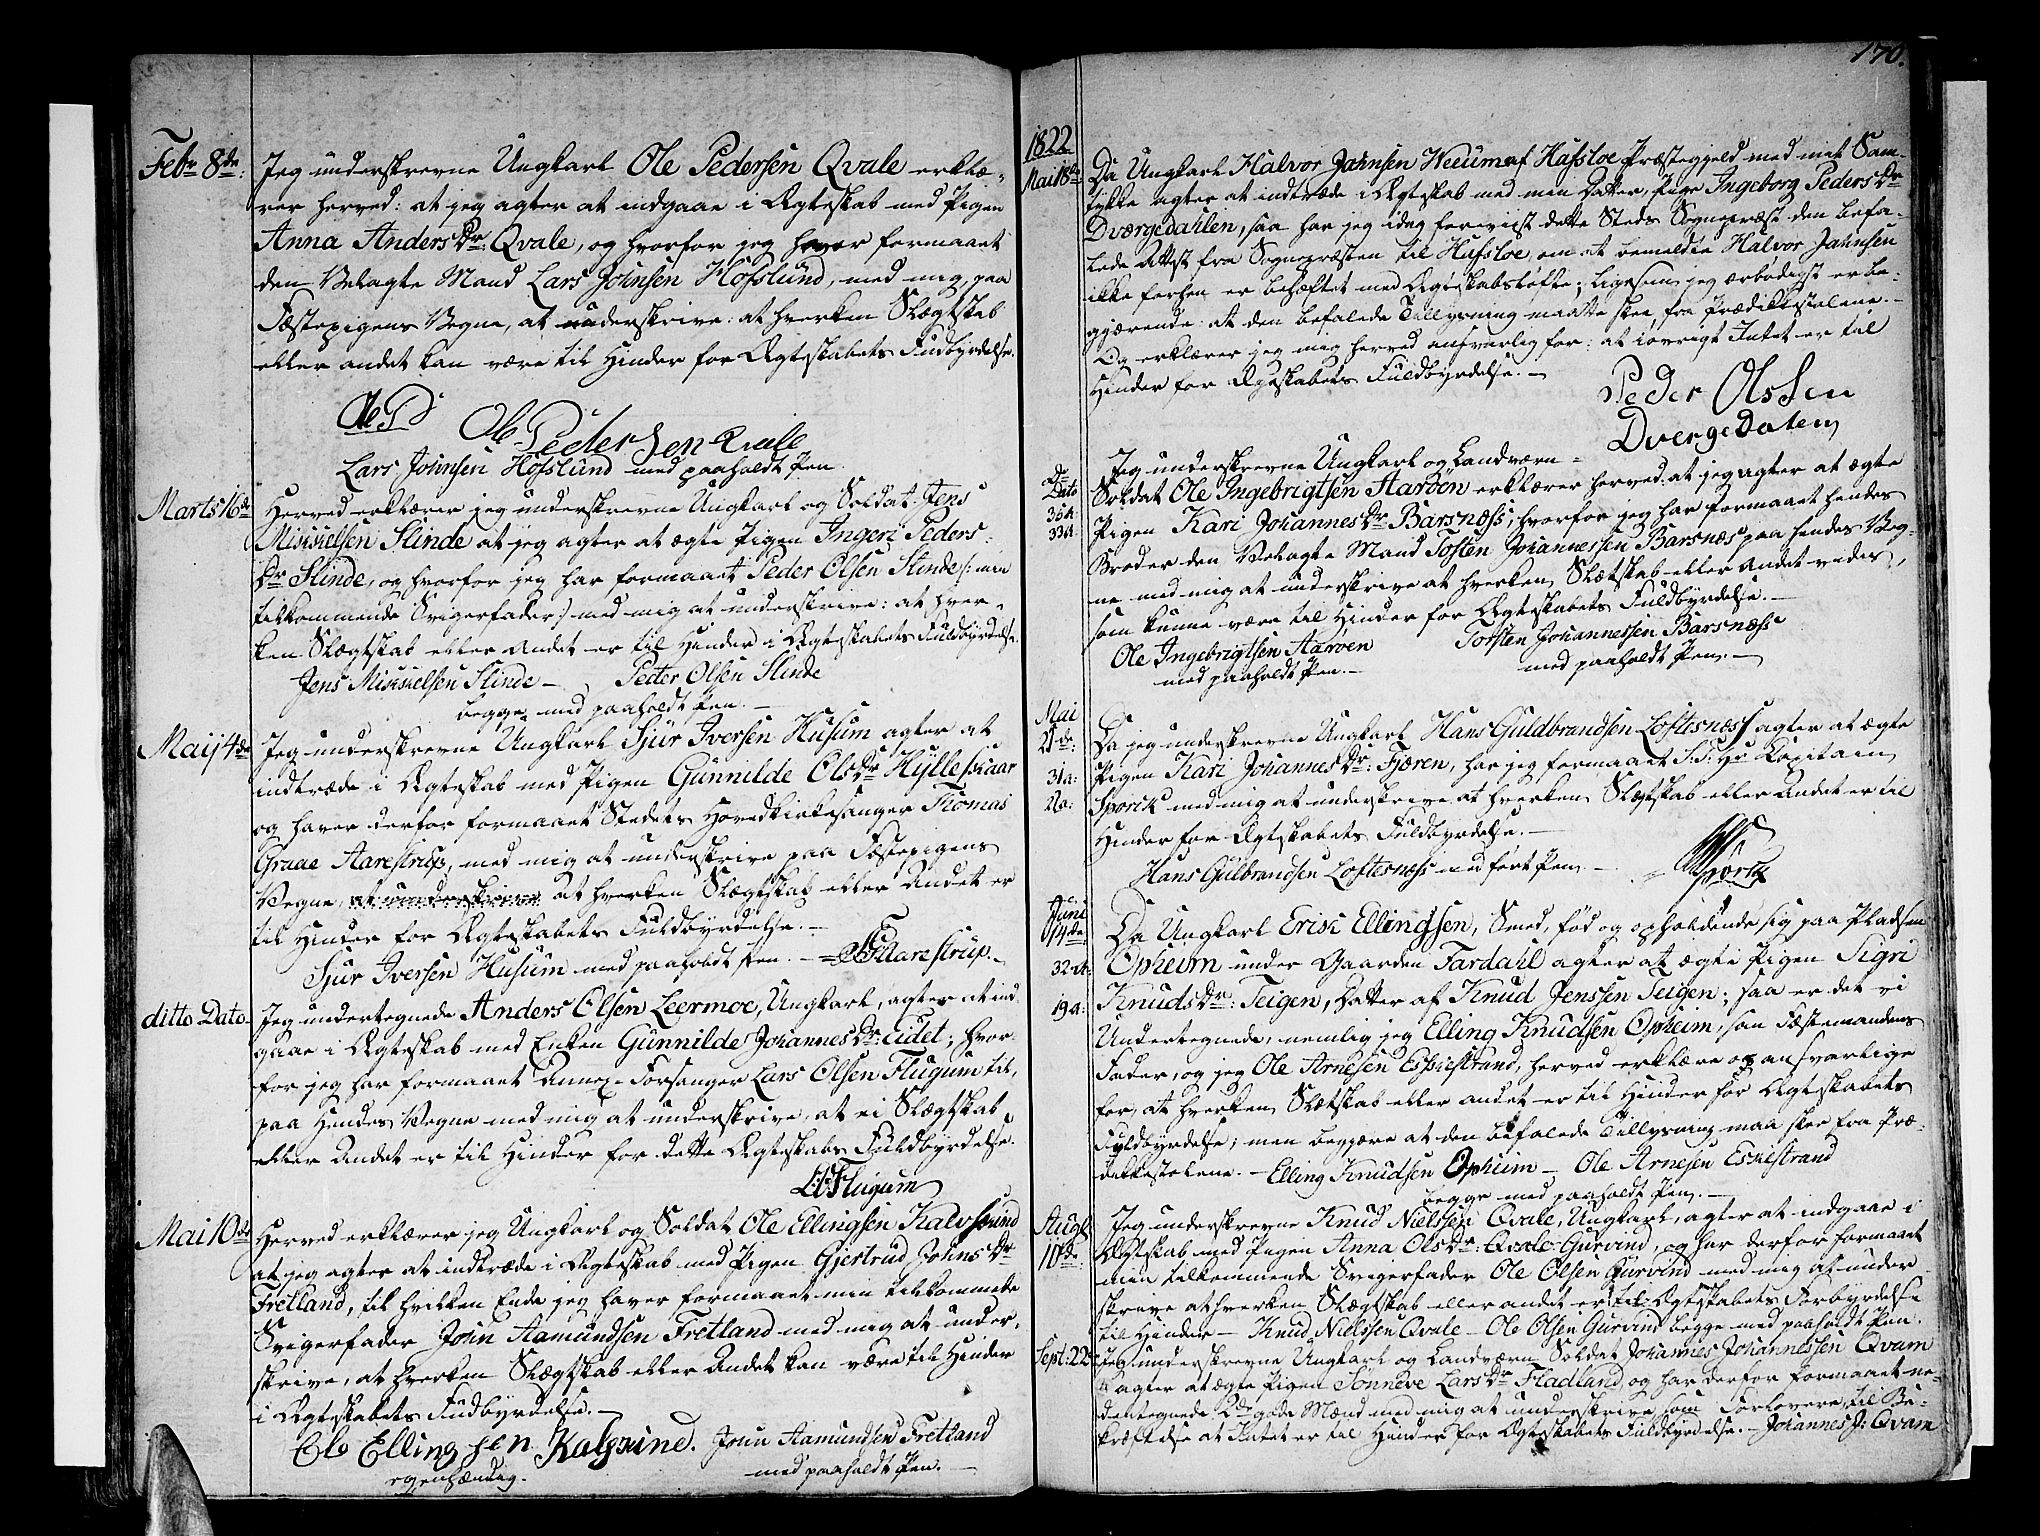 Febr 8de:
Jeg underskrevne Ungkarl Ole Pedersen Qvale erklæ-
rer herved: at jeg agter at indgaae i Ægteskab med Pigen
Anna Anders Dr Qvale, og hvorfor jeg haver formaaet
den Velagte Mand Lars Johnsen Hofslund, med mig, paa
Fæstepigens Vegne, at underskrive: at hverken Slægtskab
eller andet kan være til Hinder for Ægteskabets Fudbyrdelse.
Ole P
Ole Pedersen Qvale
Lars Johnsen Hofslund med paaholdt Pen.
Marts 16de
Herved erklærer jeg underskrevne Ungkarl og Soldat Jens
Mikkelsen Slinde at jeg agter at ægte Pigen Ingeri Peders-
Dr Slinde, og hvorfor jeg har formaaet Peder Olsen Slinde /: min
tilkommende Svigerfader :/ med mig at underskrive: at hver-
ken Slægtskab eller Andet er til Hinder i Ægteskabets Fuldbyrdelse.
Jens Mikkelsen Slinde — Peder Olsen Slinde
begge med paaholdt Pen. —
Maij 4de
Jeg underskrevne Ungkarl Sjur Iversen Husum agter at
indtræde i Ægteskab med Pigen Gunnilde Ols Dr Hylleskaar
og haver derfor formaaet Stedets Hovedkirkesanger Thomas
Graae Aarestrup, med mig at underskrive paa Fæstepigens
Vegne, at underskrive at hverken Slægtskab eller Andet er
til Hinder for Ægteskabets Fuldbyrdelse. —
Sjur Iversen Husum med paaholdt Pen. — Aarestrup.
ditto Dato
Jeg undertegnede Anders Olsen Leermoe, Ungkarl, agter at ind
gaae i Ægteskab med Enken Gunnilde Johannes Dr: Eidet; hvor-
for jeg har formaaet Annex-Forsanger Lars Olsen Flugum til,
paa Hendes Vegne med mig at underskrive, at ei Slægtskab
eller Andet er til Hinder for dette Ægteskabs Fuldbyrdelse.
Flugum
Mai 10de
Herved erklærer jeg Ungkarl og Soldat Ole Ellingsen Kalvsund
at jeg agter at indtræde i Ægteskab med Pigen Gjertrud Johns Dr
Fretland, til hvilken Ende jeg haver formaaet min tilkommende
Svigerfader John Aamundsen Fretland med mig at under-
skrive, at hverken Slægtskab eller Andet kan være til Hinder
i Ægteskabets Fudbyrdelse. —
Ole Ellingsen Kalsund. John Aamundsen Fretland
egenhændig. med paaholdt Pen. —
170.
1822
Mai 18de
Da Ungkarl Halvor Jahnsen Weeum af Hafsloe Præstegjeld med mit Sam-
tykke agter at indtræde i Ægteskab med min Datter, Pige Ingeborg Peders Dr
Dværgedahlen, saa har jeg idag foreviist dette Steds Sognepræst den befa-
lede Attest fra Sognepræsten til Hafsloe, om at bemeldte Halvor Jahnsen
ikke forhen er behæftet med Ægteskabsløfte; ligesom jeg ærbødigst erbe-
gjærende: at den befalede Tillysning maatte skee fra Prædikestolene. —
Og erklærer jeg mig herved ansvarlig for: at iøvrigt Intet er til
Hinder for Ægteskabets Fuldbyrdelse. —
Peder Olssen
Dvergedalen
do Dato
36a
33a
Jeg underskrevne Ungkarl og Landværn-
Soldat Ole Ingebrigtsen Aarøen erklærer herved: at jeg agter at ægte
Pigen Kari Johannes Dr Barsnæss; hvorfor jeg har formaaet hendes
Broder den Velagte Mand Tosten Johannessen Barsnæs paa hendes Veg-
ne med mig at underskrive at hverken Slætskab eller andet vides,
som kunne være til Hinder for Ægteskabets Fuldbyrdelse. —
Ole Ingebrigtsen Aarøen Torsten Johannessen Barsnæss
med paaholdt Pen. — med paaholdt Pen. —
Mai
21de:
31a:
21a:
Da jeg underskrevne Ungkarl Hans Guldbrandsen Loftesnæss agter at ægte
Pigen Kari Johannes Dr: Fjæren, har jeg formaaet S: T: Hr Kapitain
Sporck med mig at underskrive at hverken Slægtskab eller Andet er til
Hinder for Ægteskabets Fuldbyrdelse. —
Hans Gulbrandsen Loftesnæss med ført Pen — Sporck
Juni
32-a:
19a:
Da Ungkarl Erik Ellingsen, Smed, fød og opholdende sig paa Pladsen
Opheim under Gaarden Fardahl agter at ægte Pigen Sigri
Knuds Dr: Teigen, Datter af Knud Jenssen Teigen; saa er det vi
Undertegnede, nemlig jeg Elling Knudsen Opheim, som Fæstemandens
Fader, og jeg Ole Arnesen Eskestrand, herved erklære os ansvarlige
for, at hverken Slætskab eller andet er til Hinder for Ægteskabets
Fuldbyrdelse; men begjære at den befalede Tillysning maa skee fra Præ-
dikestolene. — Elling Knudsen Opheim — Ole Arnesen Eskestrand
begge med paaholdt Pen. —
Augt
10de
Jeg underskrevne Knud Nielssen Qvale, Ungkarl, agter at indgaae i
Ægteskab med Pigen Anna Ols Dr: Qvale Gurvind, og har derfor formaaet
min tilkommende Svigerfader Ole Olsen Gurvind med mig at under-
skrive at hverken Slægtskab eller andet er til Ægteskabets Forbyrdelse
til Hinder — Knud Nielssen Qvale — Ole Olsen Gurvind begge med paaholdt Pen.
Sept: 22
Jeg underskrevne Ungkarl og Landværn Soldat Johannes Johannessen Qvam
agter at ægte Pigen Sønneve Lars Dr Fladland, og har derfor formaaet ne-
dentegnede 2de gode Mænd med mig at underskrive som Forlovere, til Be-
kræftelse at Intet er til Hinder for Ægteskabets Fuldbyrdelse. — Johannes J: Qvam